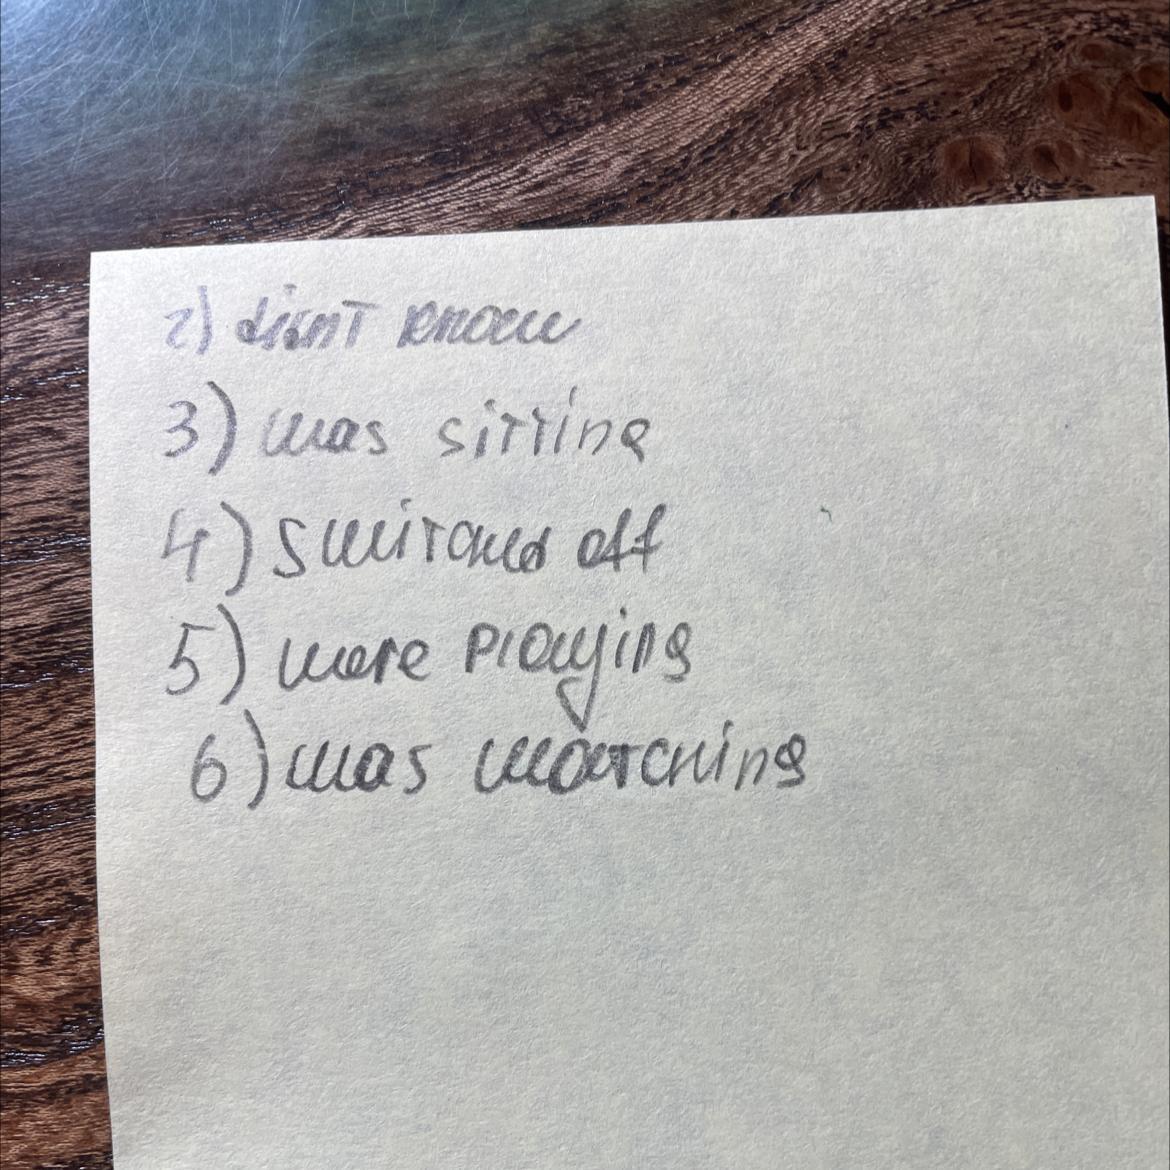 2) didnt know
3) was sitting
4) switched off
5) were playing
6) was watching